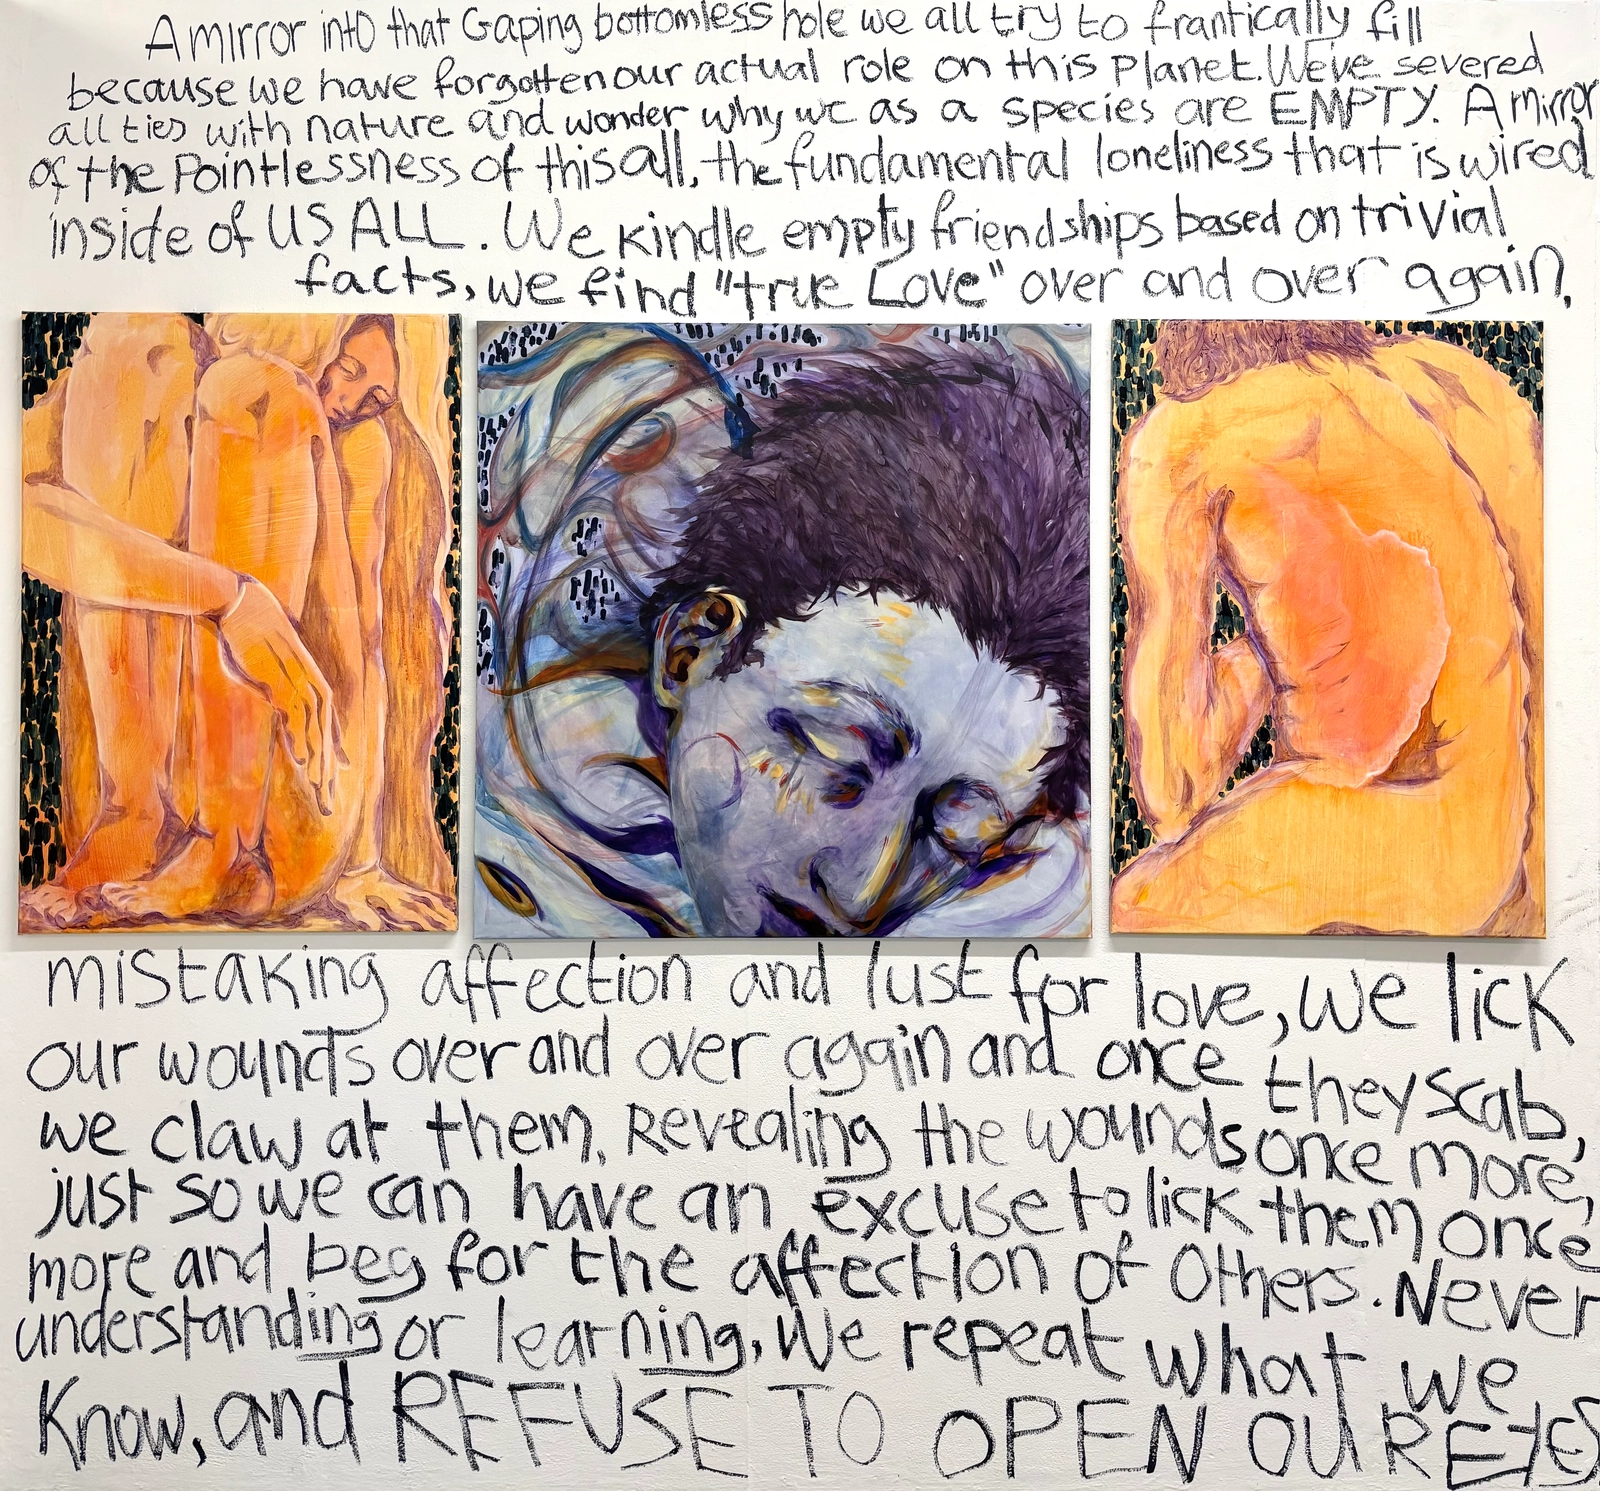 A mirror into that Gaping bottomless hole we all try to frantically fill
because we have forgotten our actual role on this planet. We've severed
all ties with nature and wonder why we as a species are EMPTY. A mirror
of the Pointlessness of this all, the fundamental loneliness that is wired
inside of US ALL. We kindle empty friendships based on trivial
facts, we find "true Love" over and over again,
mistaking affection and lust for love, we lick
our wounds over and over again and once they scab,
we claw at them, Revealing the wounds once more,
just so we can have an excuse to lick them once
more and beg for the affection of others. Never
understanding or learning, We repeat what we
Know, and REFUSE TO OPEN OUR EYES